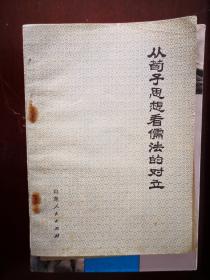 从荀子思想看儒法的对立
山东人民出版社